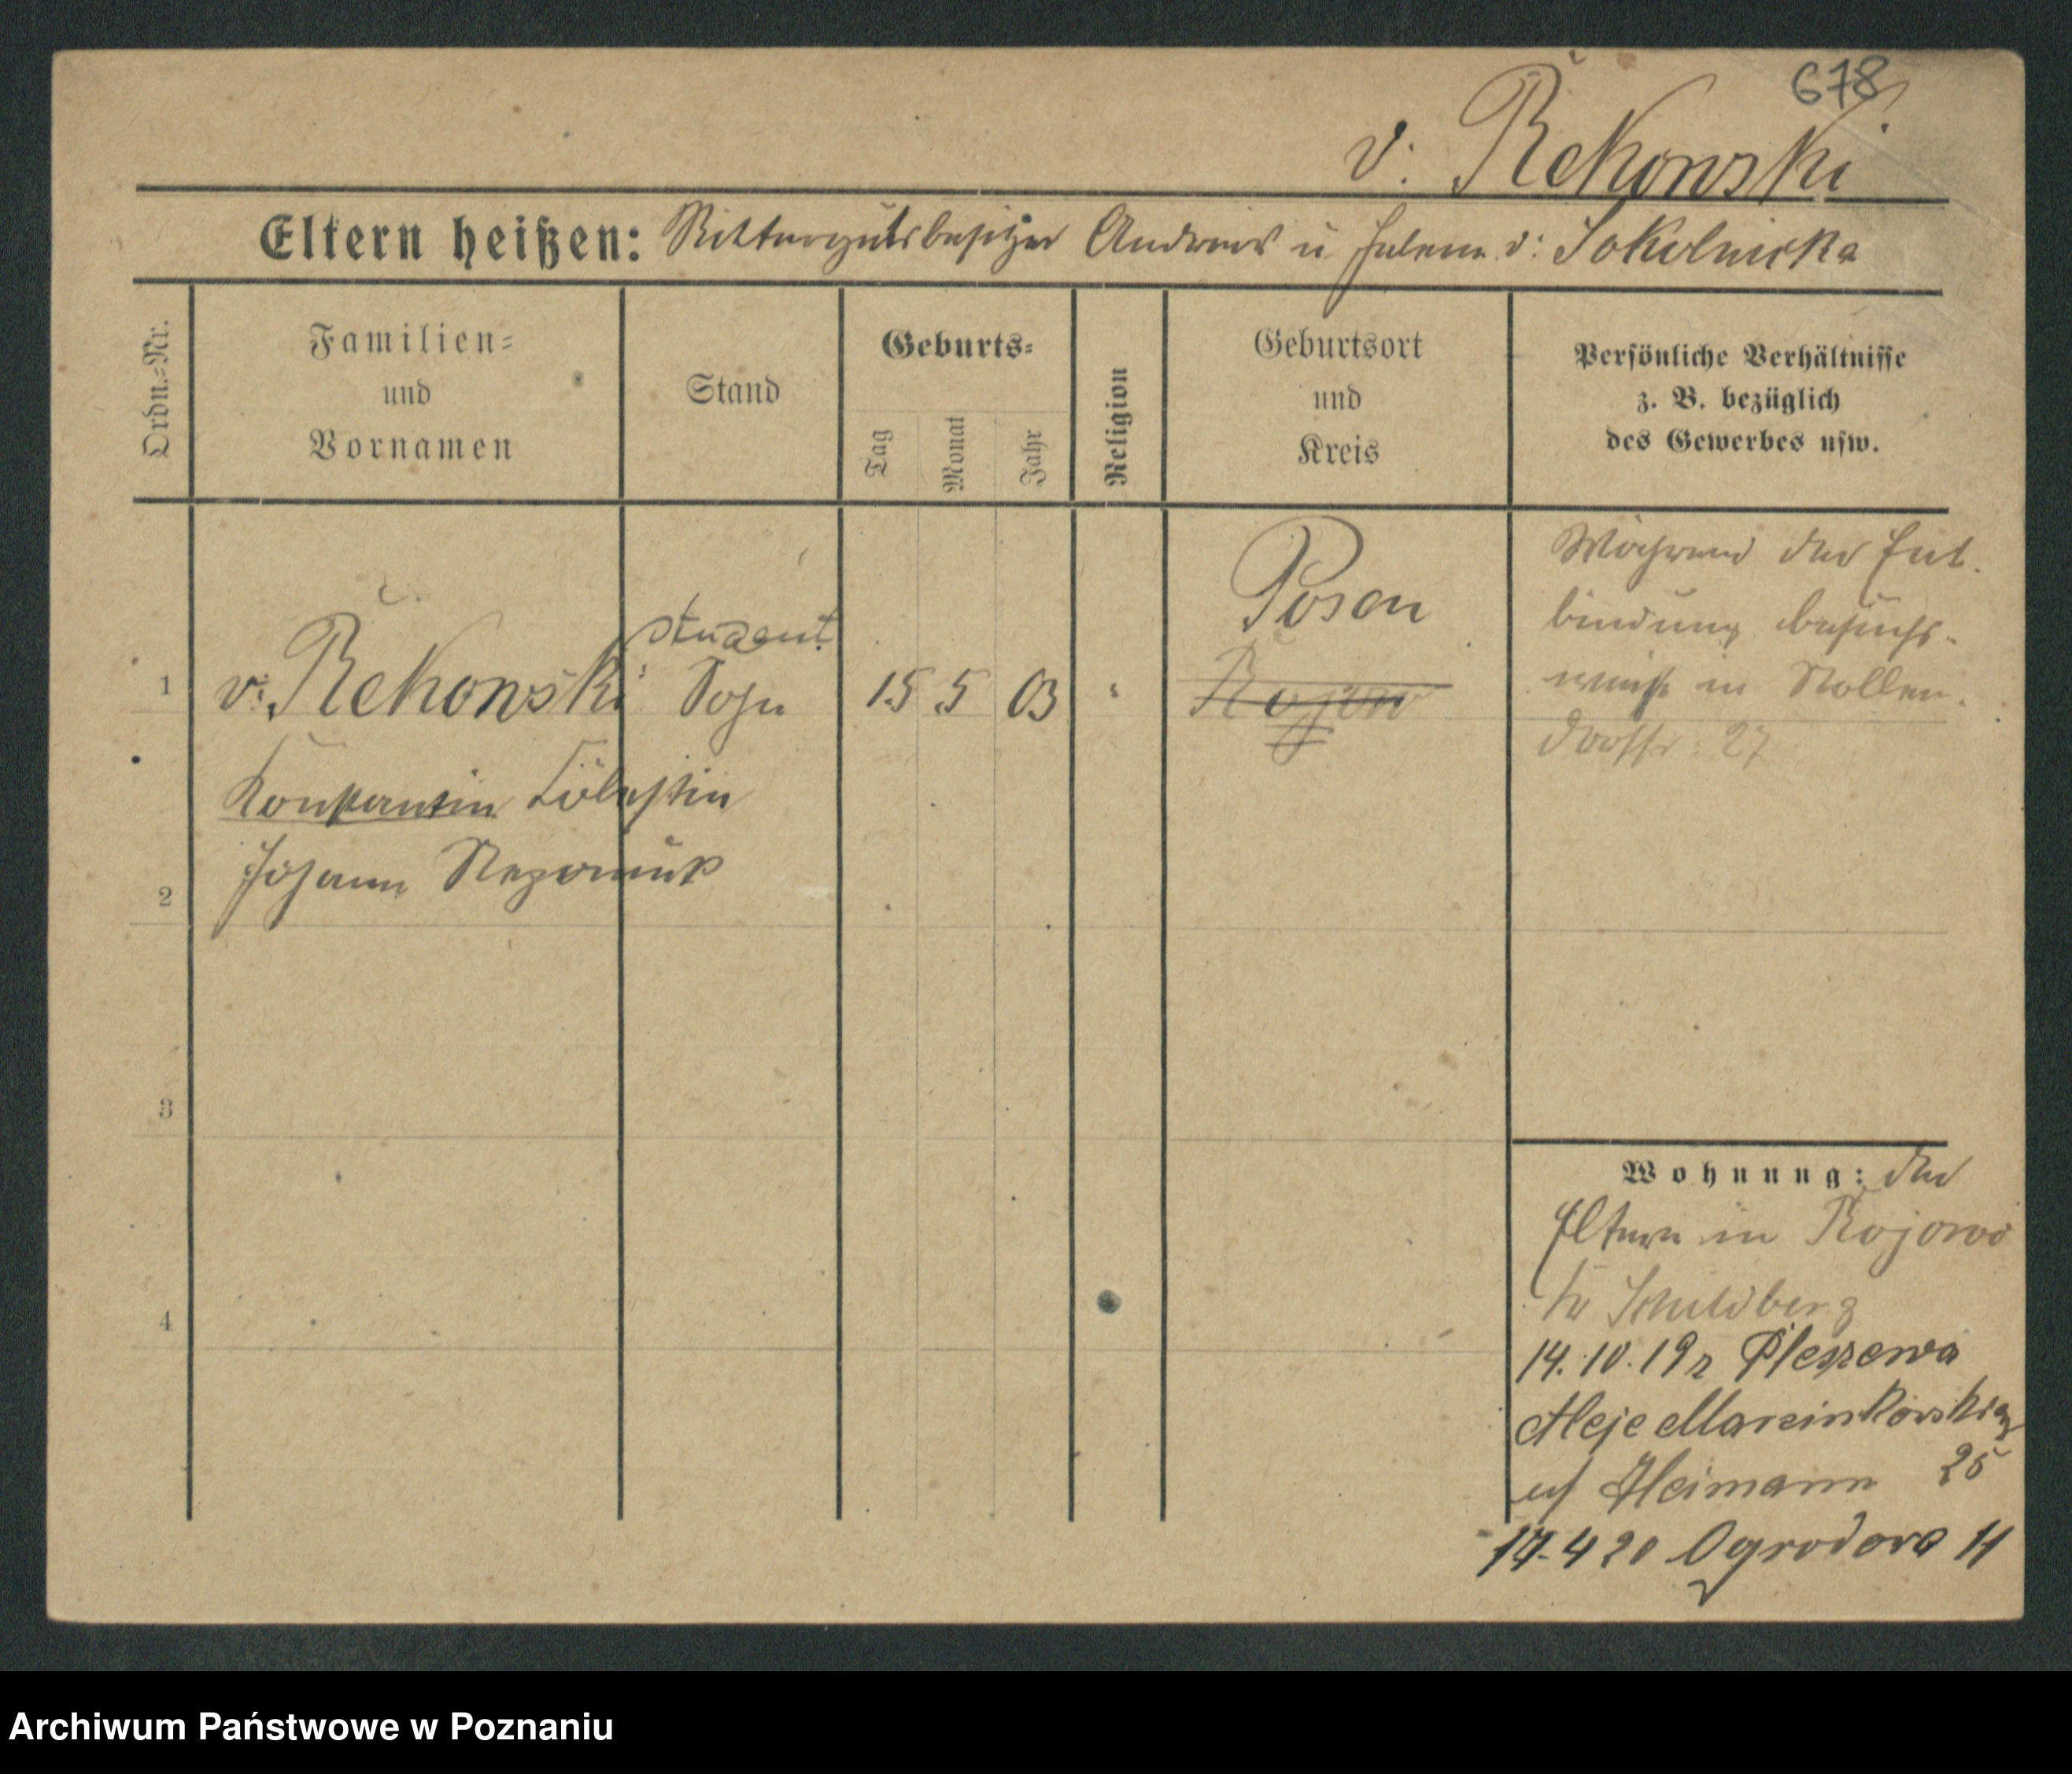 678
v. Rekowski
Eltern heißen: Rittergutsbesitzer Andreas u Helene v: Sokolnicka
Ordn.=Nr.
Familien=
und
Vornamen
Stand
Geburts=
Tag
Monat
Jahr
Religion
Geburtsort
und
Kreis
Persönliche Verhältnisse
z. B. bezüglich
des Gewerbes usw.
1
v. Rekowski
student
Sohn
15 5 03
Posen
Rojow
Während der Ent-
bindung besuchs-
weise in Nollen-
dorfstr: 27
Konstantin Cölestin
Johann Nepomuk
2
3
4
Wohnung: der
Eltern in Rojowo
Kr Schildberg
14.10.19 z Pleszewa
Aleje Marcinkowskieg
Heimann 25
17.4 20 Ogrodowa 11
Archiwum Państwowe w Poznaniu